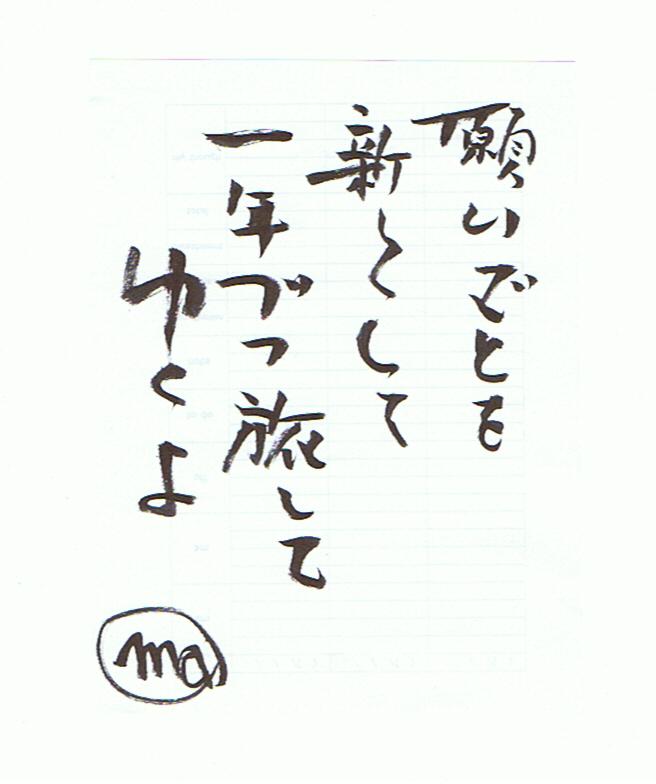 願いごとを
新くして
一年づつ旅して
ゆくよ
ma